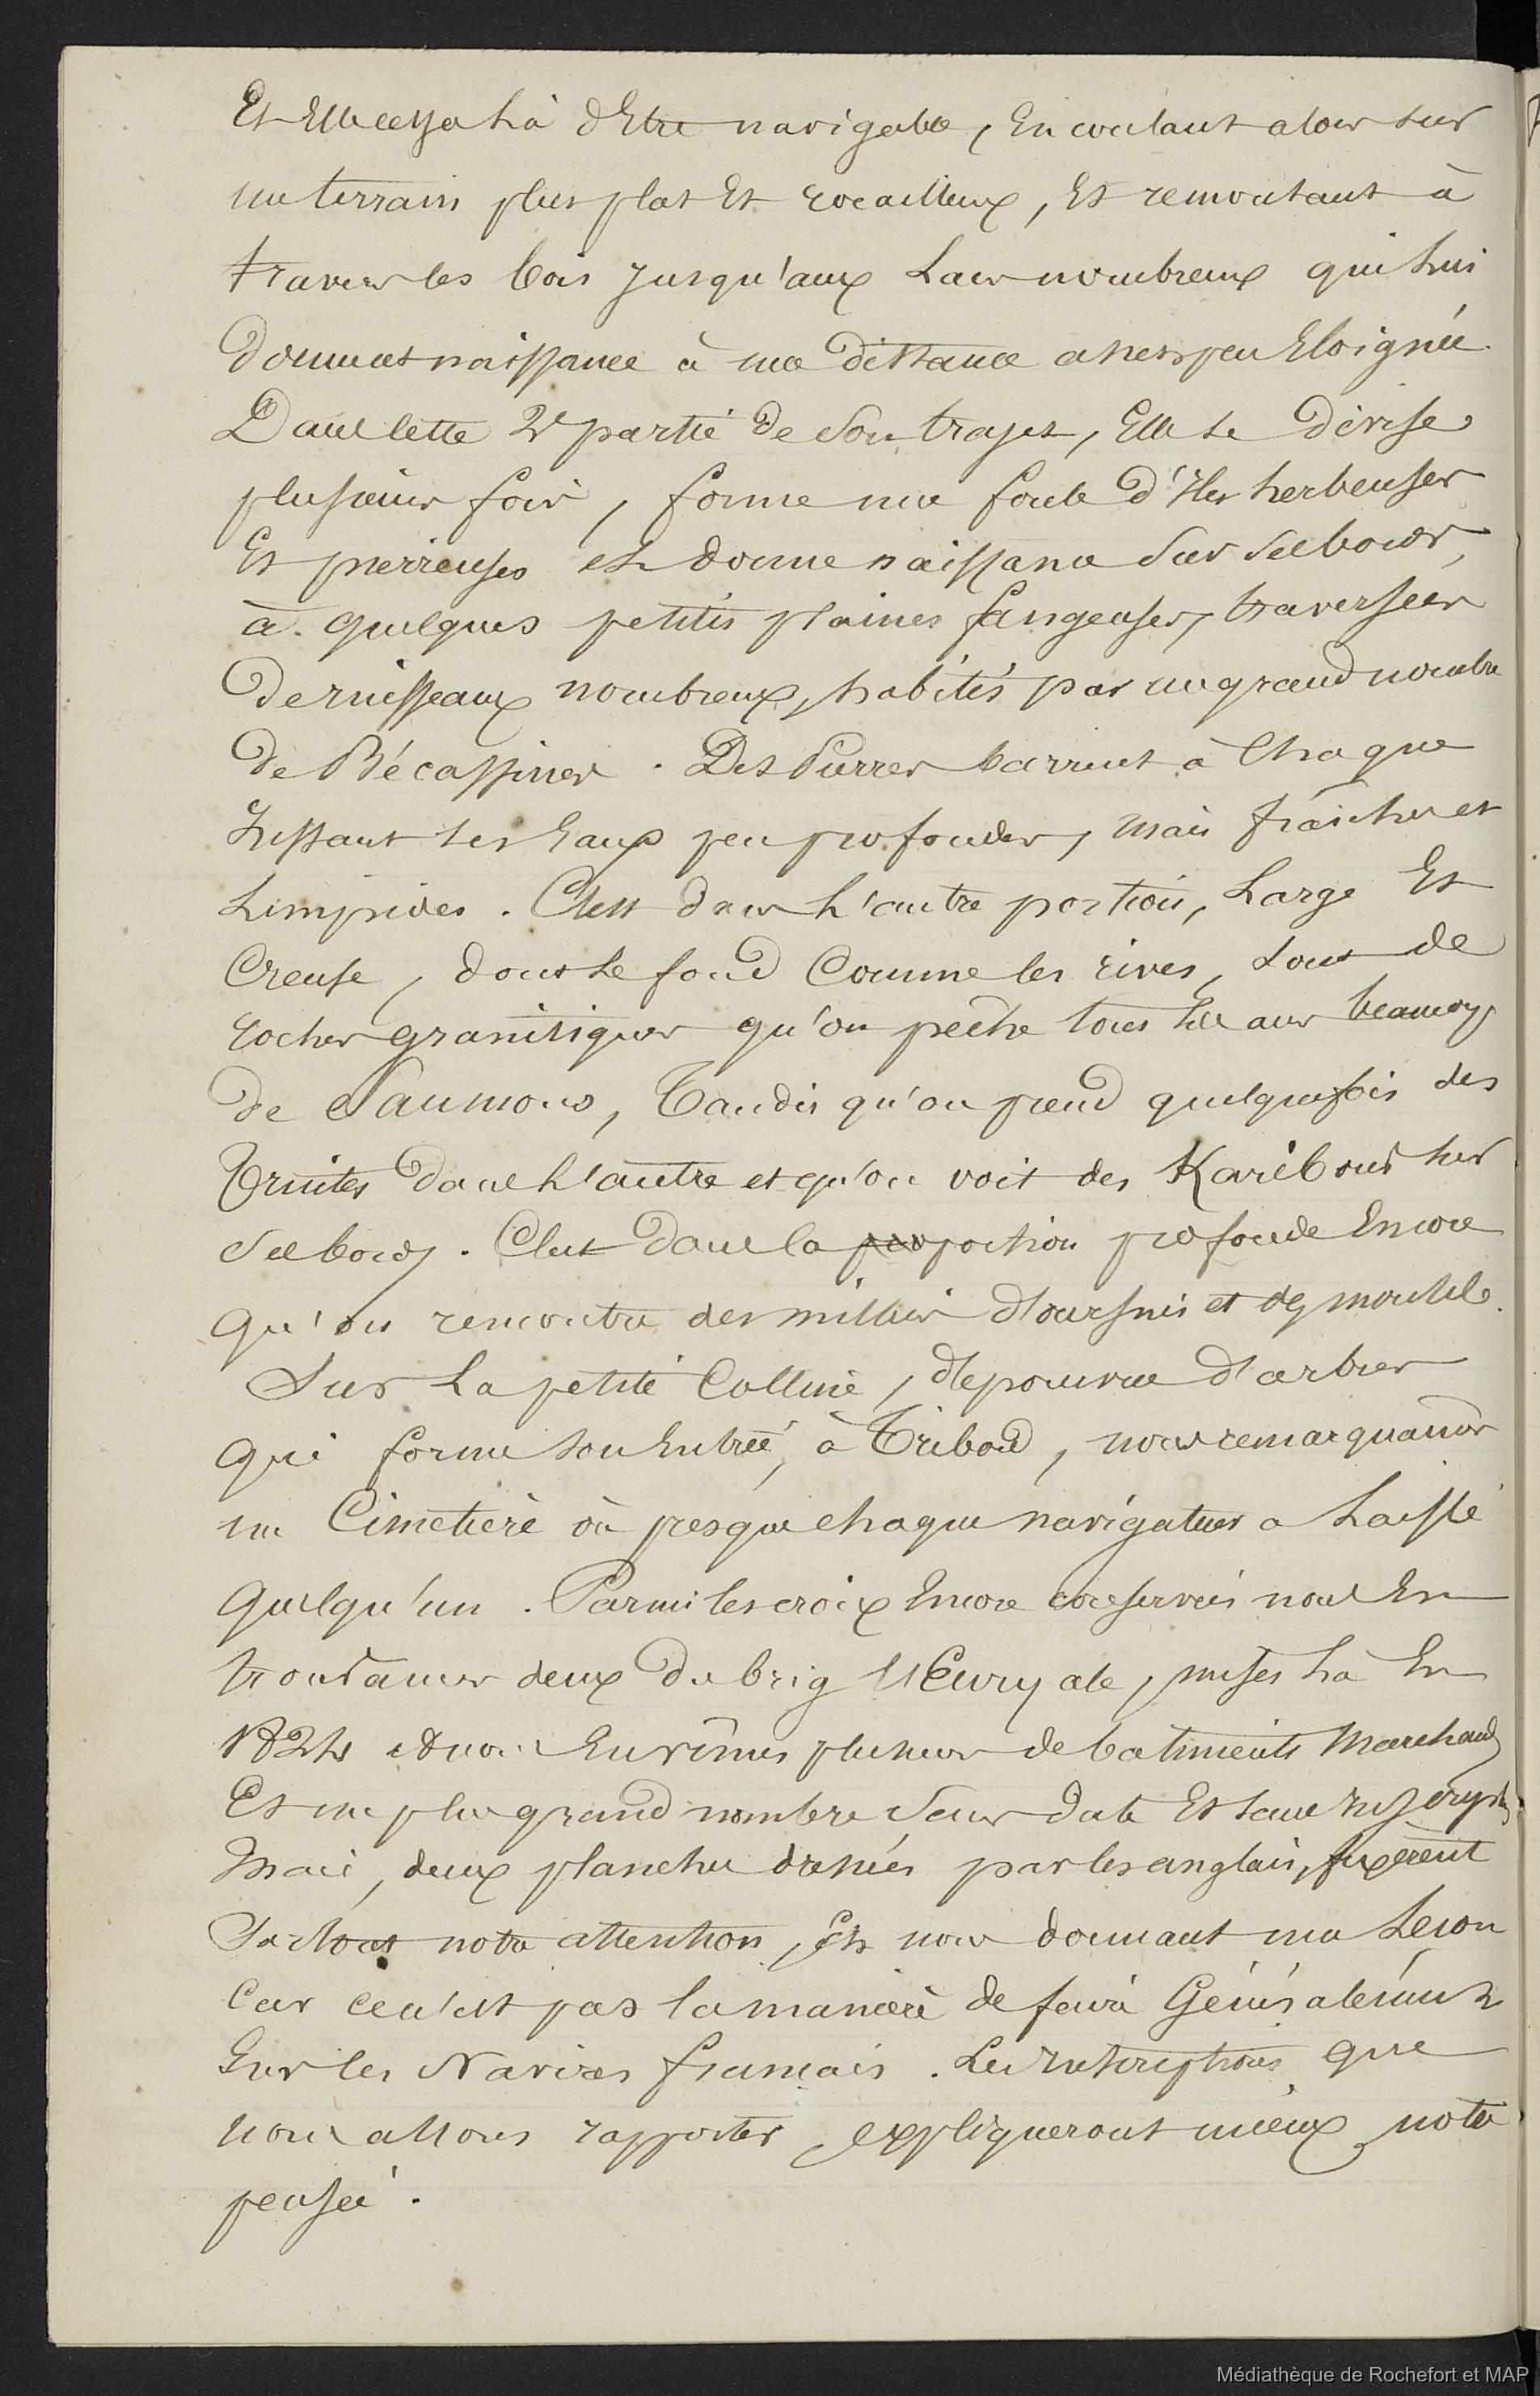 Et Elle cesse là d'Etre navigable, En coulant alors sur
un terrain plus plat Et rocailleux, Et remontant à
travers les bois jusqu'aux Lacs nombreux qui lui
donnent naissance à une distance assez peu Eloignée.
Dans cette 2e partie de son trajet, Elle se divise
plusieurs fois, forme une foule d'Iles herbeuses
Et pierreuses et donne naissance sur ses bords,
à quelques petites plaines fangeuses, traversées
de ruisseaux nombreux, habités par un grand nombre
de Bécassines. Des Pierres barrent à Chaque
Instant ses Eaux peu profondes, mais fraîches et
Limpides. C'est dans L'autre portion, Large Et
Creuse, dont le fond Comme les rives, sont de
rocher granitiques qu'on pêche tous les ans beaucoup
de Saumons, Tandis qu'on prend quelquefois des
Truites dans L'autre et qu'on voit des Karibous sur
ses bords. C'est dans la portion profonde Encore
qu'on rencontre des milliers d'oursins et de moules.
Sur La petite Colline, dépourvue d'arbres
qui forme son Entrée, à Tribord, nous remarquâmes
un Cimetière où presque chaque navigateur a Laissé
quelqu'un. Parmi les croix Encore conservées nous En
trouvâmes deux du brig L'Euryale, mises là En
1824 Enrîmes plusieurs de batiments Marchands
Et un plus grand nombre sans date Et sans Inscript
Mais, deux planches dressées par les anglais, fixèrent
surtout notre attention, En nous donnant une Leçon
Car ce n'est pas la manière de faire Généralement
Sur les Navires français. Les Inscriptions que
nous allons rapporter, expliqueront mieux notre
pensée.
Médiathèque de Rochefort et MAP